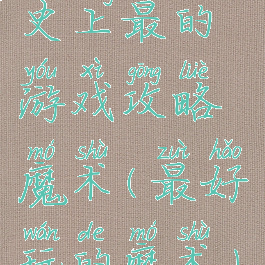 史上最的
yóu xì gōng lüè
游戏攻略
mó shù zuì hǎo
魔术(最好
wán de mó shù
玩的魔术)